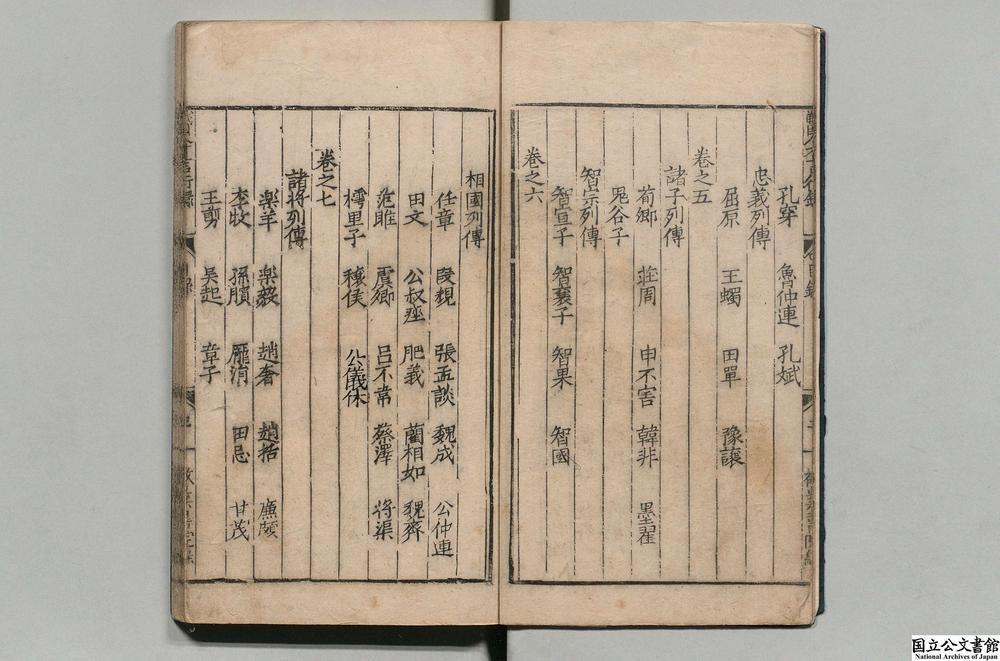 孔穿 魯仲連 孔斌
忠義列傳
屈原 王蠋 田單 豫讓
卷之五
諸子列傳
荀卿 莊周 申不害 韓非 墨翟
鬼谷子
智宗列傳
智宣子 智襄子 智果 智國
卷之六
相國列傳
任章 段規 張孟談 魏成 公仲連
田文 公叔痤 肥義 藺相如 貌齊
范雎 虞卿 呂不韋 蔡澤 將渠
樗里子 穰侯 公儀休
卷之七
諸將列傳
楽羊 楽毅 趙奢 趙括 廉頗
李牧 孫臏 龐涓 田忌 甘茂
王剪 吳起 章子
国立公文書館
National Archives of Japan